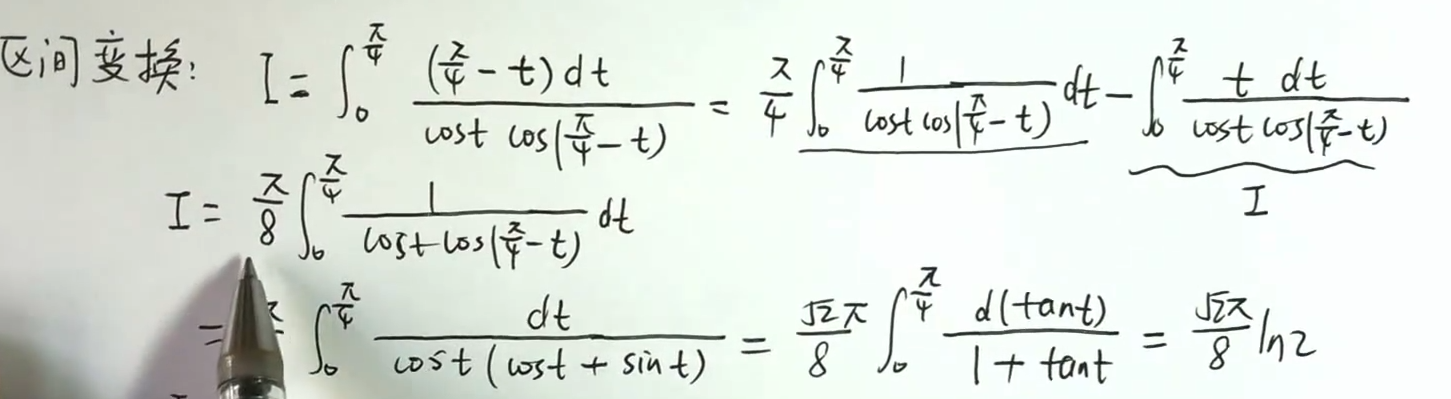 区间变换: I = ∫₀^{π/4} (π/4 - t) dt / (cost cos(π/4 - t)) = π/4 ∫₀^{π/4} 1 / (cost cos(π/4 - t)) dt - ∫₀^{π/4} t dt / (cost cos(π/4 - t))
I
I = π/8 ∫₀^{π/4} 1 / (cost cos(π/4 - t)) dt
= ∫₀^{π/4} dt / (cost (cost + sint)) = √2π/8 ∫₀^{π/4} d(tant) / (1 + tant) = √2π/8 ln2